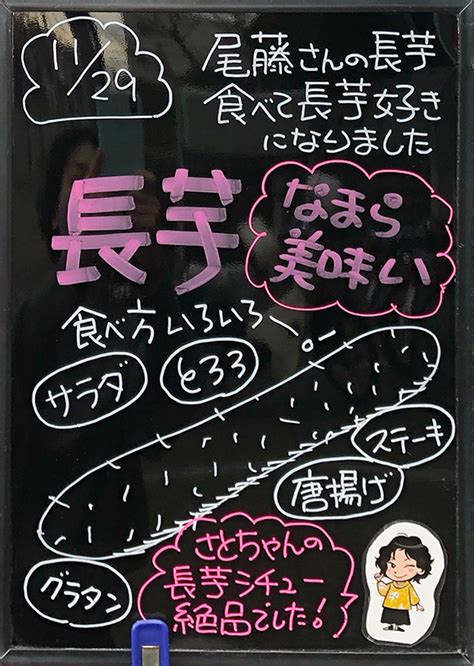 11/29
尾藤さんの長芋
食べて長芋好き
になりました
長芋
なまら
美味い
食べ方いろいろ〜
サラダ
とろろ
ステーキ
唐揚げ
グラタン
さとちゃんの
長芋シチュー
絶品でした!